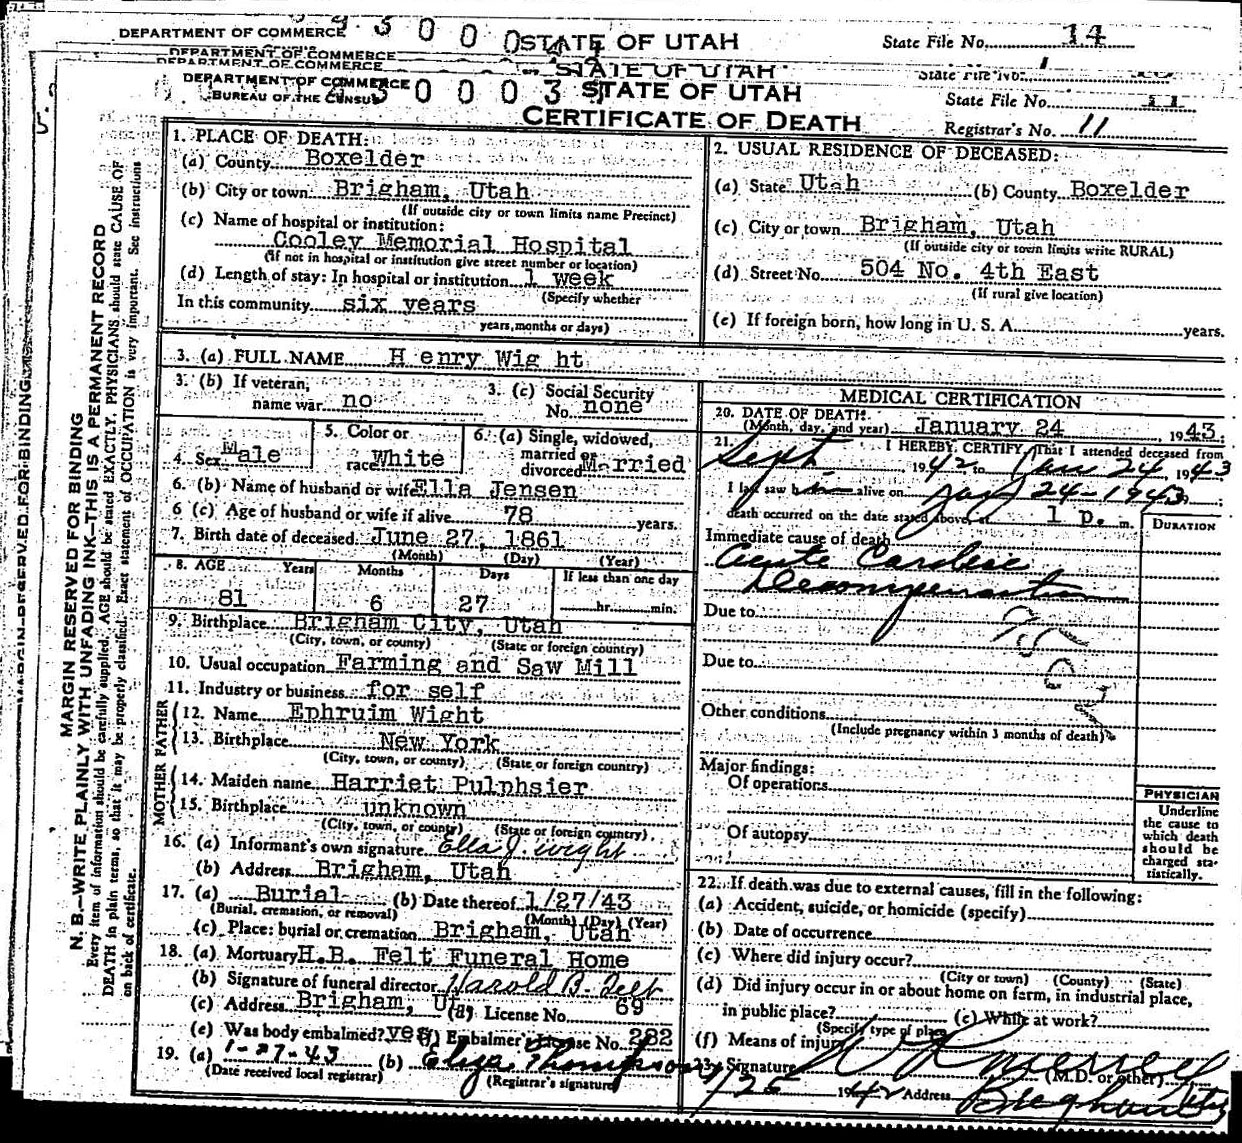 DEPARTMENT OF COMMERCE STATE OF UTAH State File No. 14
DEPARTMENT OF COMMERCE
DEPARTMENT OF COMMERCE STATE OF UTAH State File No.
DEPARTMENT OF COMMERCE STATE OF UTAH State File No. 11
BUREAU OF THE CENSUS
CERTIFICATE OF DEATH Registrar's No. 11
MARGIN RESERVED FOR BINDING
MARGIN RESERVED FOR BINDING
N. B.—WRITE PLAINLY WITH UNFADING INK—THIS IS A PERMANENT RECORD
Every item of information should be carefully supplied. AGE should be stated EXACTLY. PHYSICIANS should state CAUSE OF
DEATH in plain terms, so that it may be properly classified. Exact statement of OCCUPATION is very important. See instructions
on back of certificate.
1. PLACE OF DEATH:
(a) County Boxelder
(b) City or town Brigham, Utah
(If outside city or town limits name Precinct)
(c) Name of hospital or institution:
Cooley Memorial Hospital
(If not in hospital or institution give street number or location)
(d) Length of stay: In hospital or institution 1 week
(Specify whether
In this community six years
years, months or days)
2. USUAL RESIDENCE OF DECEASED:
(a) State Utah (b) County Boxelder
(c) City or town Brigham, Utah
(If outside city or town limits write RURAL)
(d) Street No. 504 No. 4th East
(If rural give location)
(e) If foreign born, how long in U. S. A. years.
3. (a) FULL NAME H enry Wig ht
3. (b) If veteran, name war no
3. (c) Social Security No. none
4. Sex Male
5. Color or race White
6. (a) Single, widowed, married or divorced Married
6. (b) Name of husband or wife Ella Jensen
6 (c) Age of husband or wife if alive 78 years.
7. Birth date of deceased June 27, 1861
(Month) (Day) (Year)
8. AGE Years Months Days If less than one day
81 6 27 hr. min.
9. Birthplace Brigham City, Utah
(City, town, or county) (State or foreign country)
10. Usual occupation Farming and Saw Mill
11. Industry or business for self
FATHER
12. Name Ephruim Wight
13. Birthplace New York
(City, town, or county) (State or foreign country)
MOTHER
14. Maiden name Harriet Pulphsier
15. Birthplace unknown
(City, town, or county) (State or foreign country)
16. (a) Informant's own signature Ella J. Wight
(b) Address Brigham, Utah
17. (a) Burial (b) Date thereof 1/27/43
(Burial, cremation, or removal) (Month) (Day) (Year)
(c) Place: burial or cremation Brigham, Utah
18. (a) Mortuary H.B. Felt Funeral Home
(b) Signature of funeral director Harold B. Felt
(c) Address Brigham, Uta (d) License No. 69
(e) Was body embalmed? yes (f) Embalmer's License No. 282
19. (a) 1-27-43 (b) Eliza Thompson
(Date received local registrar) (Registrar's signature)
MEDICAL CERTIFICATION
20. DATE OF DEATH
(Month, day, and year) January 24 , 1943.
21. I HEREBY CERTIFY, That I attended deceased from
Sept 1942 to Jan 24, 1943
I last saw him alive on Jan 24-1943
death occurred on the date stated above, at 1 p. m.
DURATION
Immediate cause of death
Acute Cardiac
Decompensation
Due to
Due to
Other conditions
(Include pregnancy within 3 months of death)
Major findings:
Of operations
Of autopsy
PHYSICIAN
Underline
the cause to
which death
should be
charged sta-
tistically.
22. If death was due to external causes, fill in the following:
(a) Accident, suicide, or homicide (specify)
(b) Date of occurrence
(c) Where did injury occur?
(City or town) (County) (State)
(d) Did injury occur in or about home on farm, in industrial place,
in public place? (e) While at work?
(Specify type of place)
(f) Means of injury
23. Signature (M.D. or other)
1/25 1942 Address Brigham